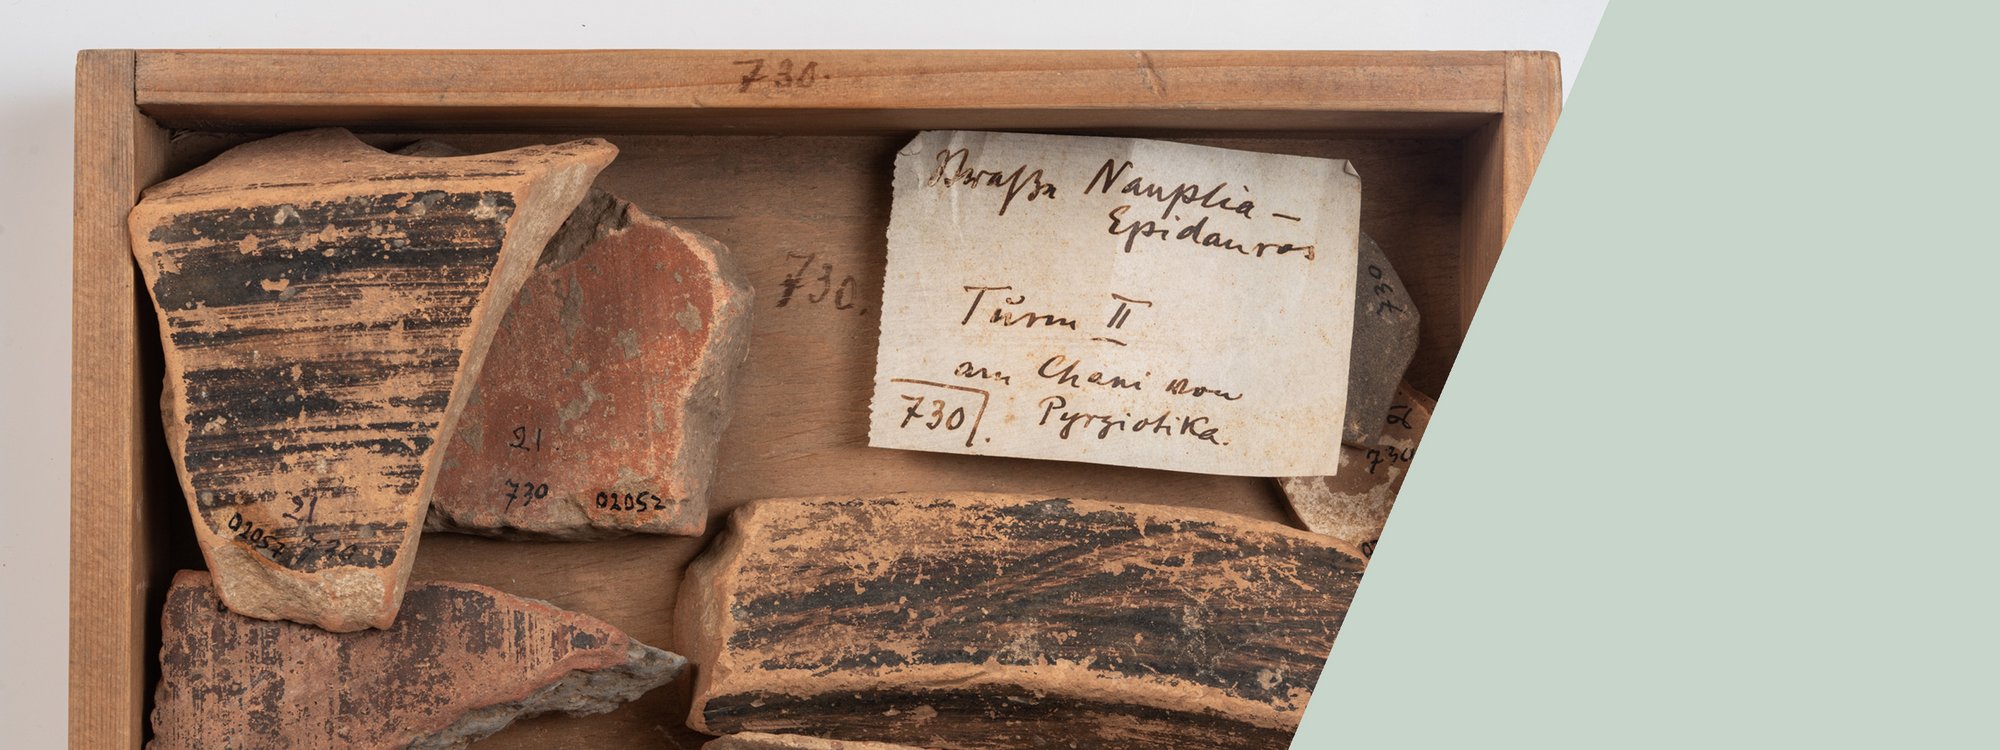 730.
Straße Nauplia –
Epidauros
730.
Turm II
am Chani von
730.
Pyrgiotika.
730
21.
730
02052
21
02052 730
21
730